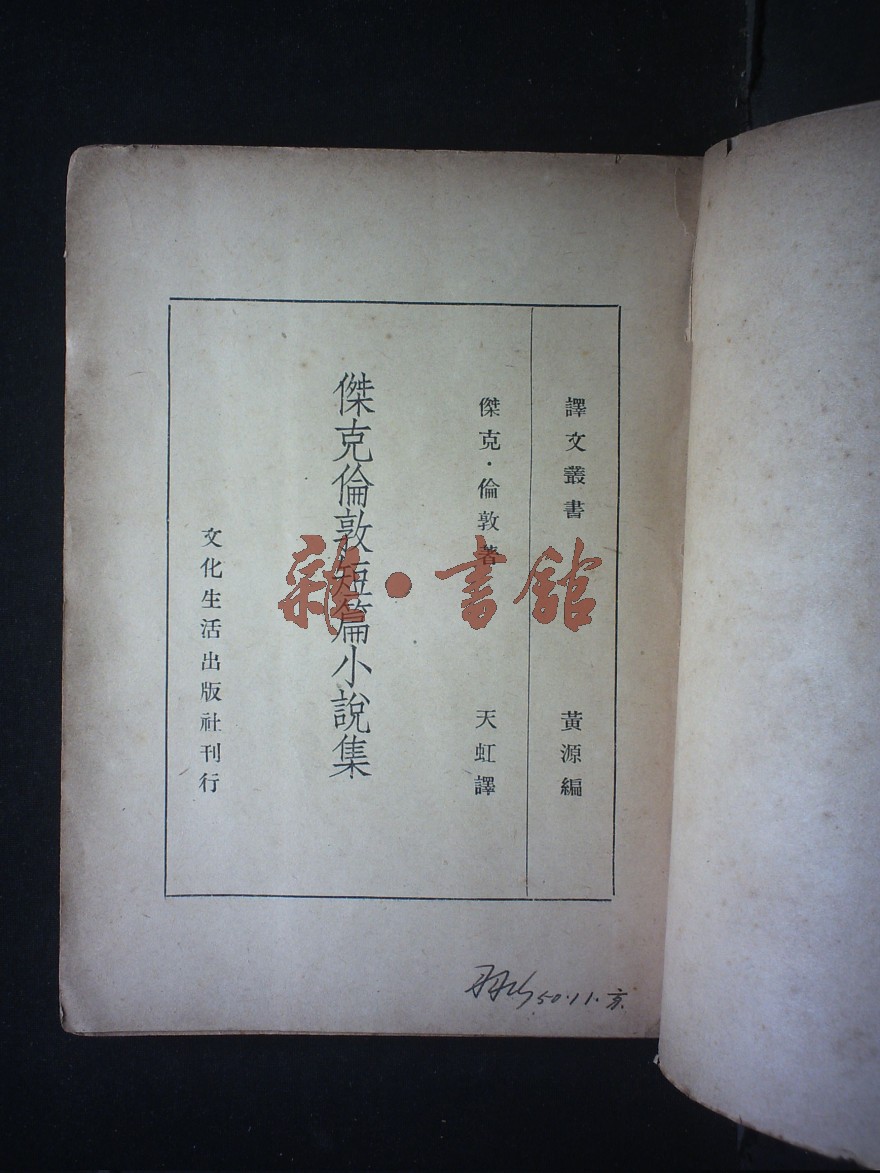 譯文叢書 黃源編
傑克·倫敦著 天虹譯
傑克倫敦短篇小說集
文化生活出版社刊行
雜·書館
50.11.京.